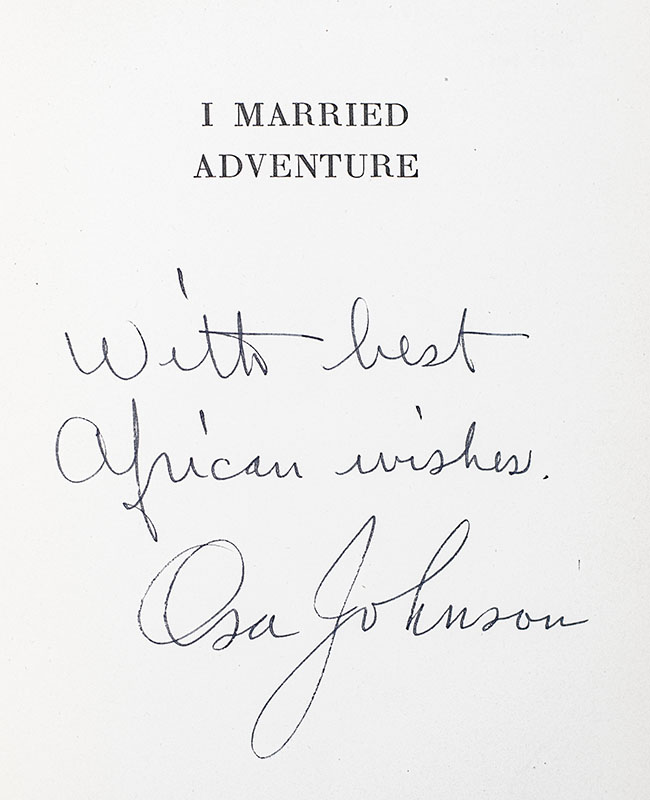 I MARRIED
ADVENTURE
With best
African wishes.
Osa Johnson